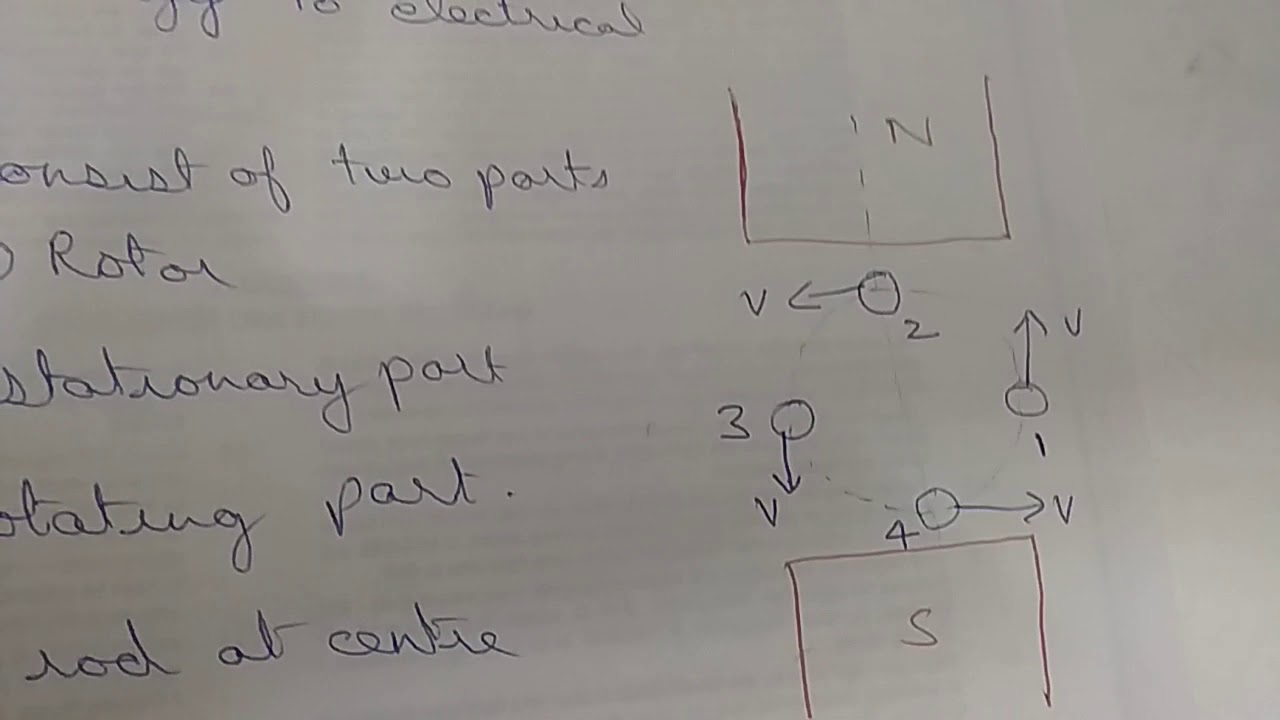 to electrical
onsist of two parts
Rotor
stationary part
otating part.
rod at centre
N
V 2
V
3
1
V
4 V
S